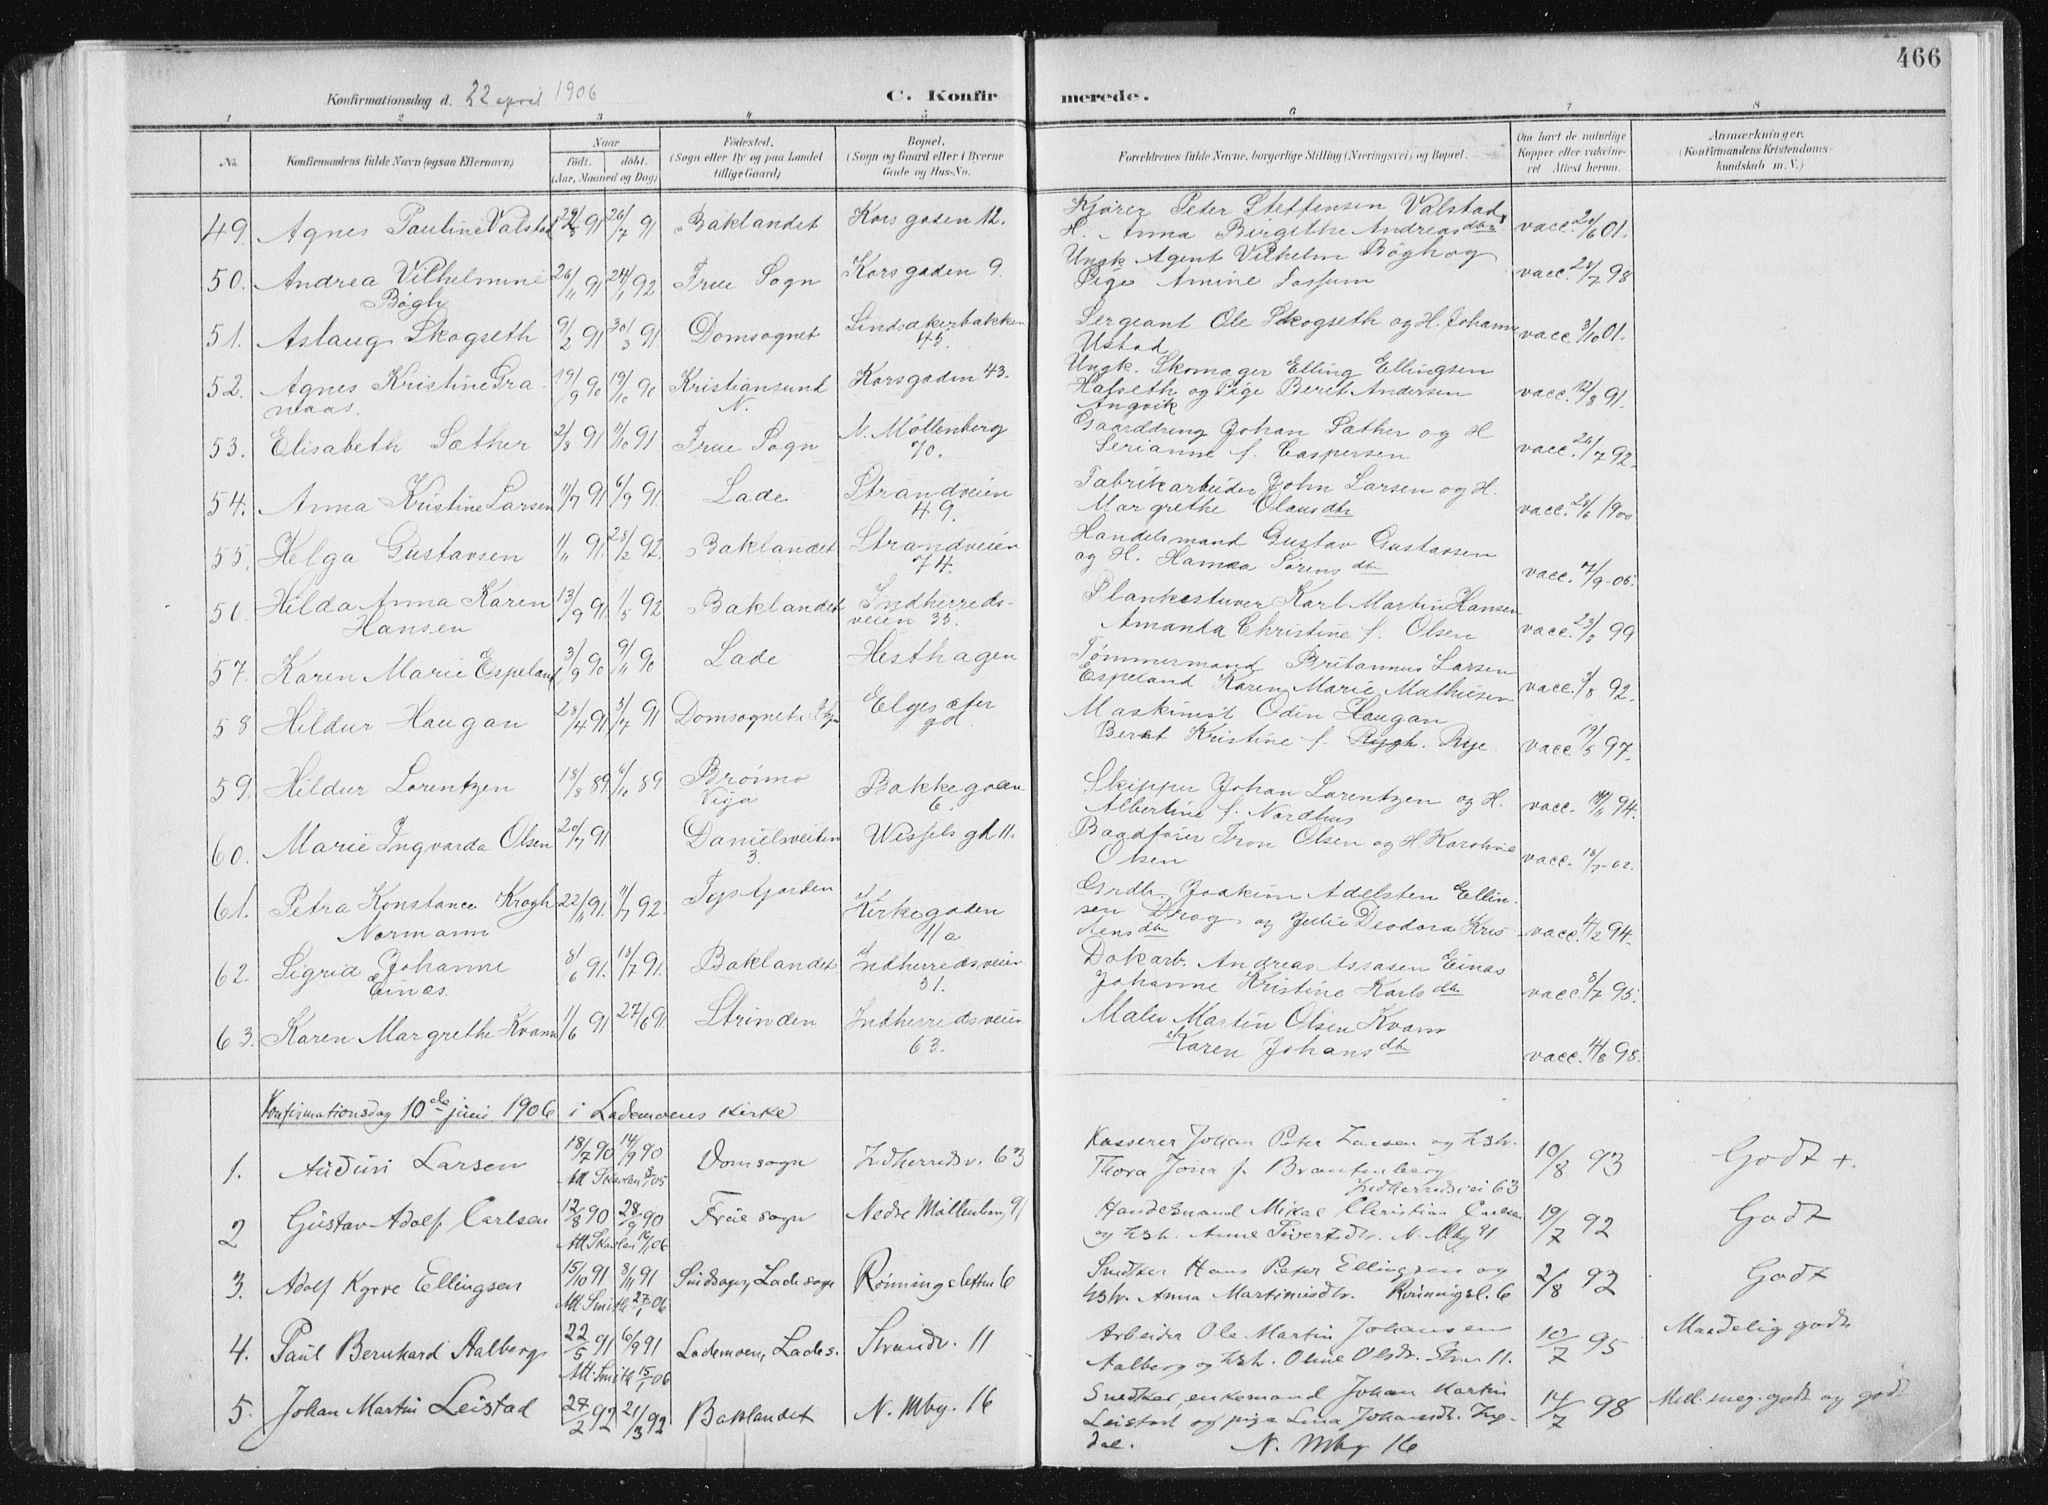 466
Konfirmationsdag d. 22 april 1906 C. Konfirmerede.
1 2 3 4 5 6 7 8
No. Konfirmandens fulde Navn (ogsaa Efternavn) Naar født. døbt. (Aar, Maaned og Dag) Fødested. (Sogn eller By og paa Landet tillige Gaard) Bopæl. (Sogn og Gaard eller i Byerne Gade og Hus-No. Forældrenes fulde Navne, borgerlige Stilling (Næringsvei) og Bopæl. Om havt de naturlige Kopper eller vakcineret Attest herom. Anmærkninger. (Konfirmandens Kristendomskundskab m. V.)
49. Agnes Pauline Valstad 91 26/7 91 Baklandet Korsgaden 12. Kjører Peter Steffensen Valstad
H. Anna Birgithe Andreasdtr vacc. 01.
50. Andrea Vilhelmine Bøgh 26/11 91 24/1 92 Frue Sogn Korsgaden 9 Ungk Agent Vilhelm Bøgh og
Pige Amine Fossum vacc. 28/7 98
51. Aslaug Skogseth 9/2 91 30/3 91 Domsognet Lindsakerbakken 45. Sergeant Ole Skogseth og H. Johanne
Ustad vacc. 3/10 01.
52. Agnes Kristine Granaas. 19/9 90 19/10 90 Kristiansund N. Korsgaden 43. Ungk. Skomager Elling Ellingsen
Halseth og Pige Beret Andersen
Angvik vacc. 12/8 91.
53. Elisabeth Sæther 2/8 91 11/10 91 Frue Sogn N. Møllenberg 70. Gaarddreng Johan Sæther og H
Serianne f. Caspersen vacc. 26/7 92.
54. Anna Kristine Larsen 11/7 91 6/9 91. Lade Strandveien 49. Fabrikarbeider John Larsen og H.
Margrethe Olausdtr vacc. 28/6 1900
55. Helga Gustavsen 1/11 91. 28/2 92. Baklandet Strandveien 74. Handelsmand Gustav Gustavsen
og H. Hanna Sørensdtr vacc. 7/9-05.
56. Hilda Anna Karen Hansen 13/9 91. 1/5 92 Baklandet Indherredsveien 33. Plankestuver Karl Martin Hansen
Amanda Christine f. Olsen vacc. 23/8 99
57. Karen Marie Espeland 3/9 90 9/11 90 Lade Hesthagen Tømmermand Britannus Larsen
Espeland Karen Marie Mathiesen vacc. 92.
58 Hildur Haugan 28/4 91 5/7 91 Domsognet Elgesæter gd. Maskinist Odin Haugan
Beret Kristine f. Rygh. Rye vacc. 19/5 97.
59. Hildur Lorentzen 18/8 89. 6/10 89 Brønnø Vega Bakkegaden 6. Skipper Johan Lorentzen og H.
Albertine f. Nordhus vacc. 94.
60. Marie Ingvarda Olsen 20/7 91 Danielsveiten 3. Wessels gd 11. Baadfører Tron Olsen og H. Karoline
Olsen vacc. 18/7-02.
61. Petra Konstance Krogh Normann 22/11 91. 11/7 92. Fysfjorden Kirkegaden 11a Grdbr. Joakim Adelsten Ellinsen
Drag og Julie Deodora Kristensdtr vacc. 4/2 94.
62. Sigrid Johanne Einæs. 8/6 91. 18/7 91. Baklandet Indherredsveien 31. Dokarb. Andreas Assasen Einæs
Johanne Kristine Karlsdtr vacc. 8/7 95.
63. Karen Margrethe Kvam 11/6 91 27/6 91. Strinden Indherredsveien 63. Maler Martin Olsen Kvam
Karen Johansdtr vacc. 4/8 98.
Konfirmationsdag 10de juni 1906 i Lademoens kirke
1. Audun Larsen 18/7 90 14/9 90 Domsogn Indherredsv. 63 Kasserer Johan Peter Larsen og hstr.
Thora Jona f. Brantenberg
Indherredsvei 63 10/8 93 Godt +.
2 Gustav Adolf Carlsen 12/8 90 28/9 90 Frue sogn Nedre Møllenberg 91 Handelsmand Mikal Christian Carlsen
og hstr. Anne Sivertsdtr. N. Mbg 91 19/7 92 Godt
3. Adolf Kyrre Ellingsen 15/10 91 8/11 91 Lade sogn Rønningsletten 6 Snedker Hans Peter Ellingsen og
hstr. Anna Martinusdtr. Rønningsl. 6 2/8 92 Godt
4. Paul Bernhard Aalberg 22/5 91 6/9 91 Lademoen, Lades. Strandv. 11 Arbeider Ole Martin Johansen
Aalberg og hstr. Oline Olsdtr. Strv. 11. 10/7 95 Maadelig godt
5. Johan Martin Leistad 27/2 92 21/3 92 Baklandet N. Mbg. 16 Snedker, enkemand Johan Martin
Leistad og pige Lina Johansdtr.
N. Mbg 16 14/7 98 Mell. meg. godt og godt